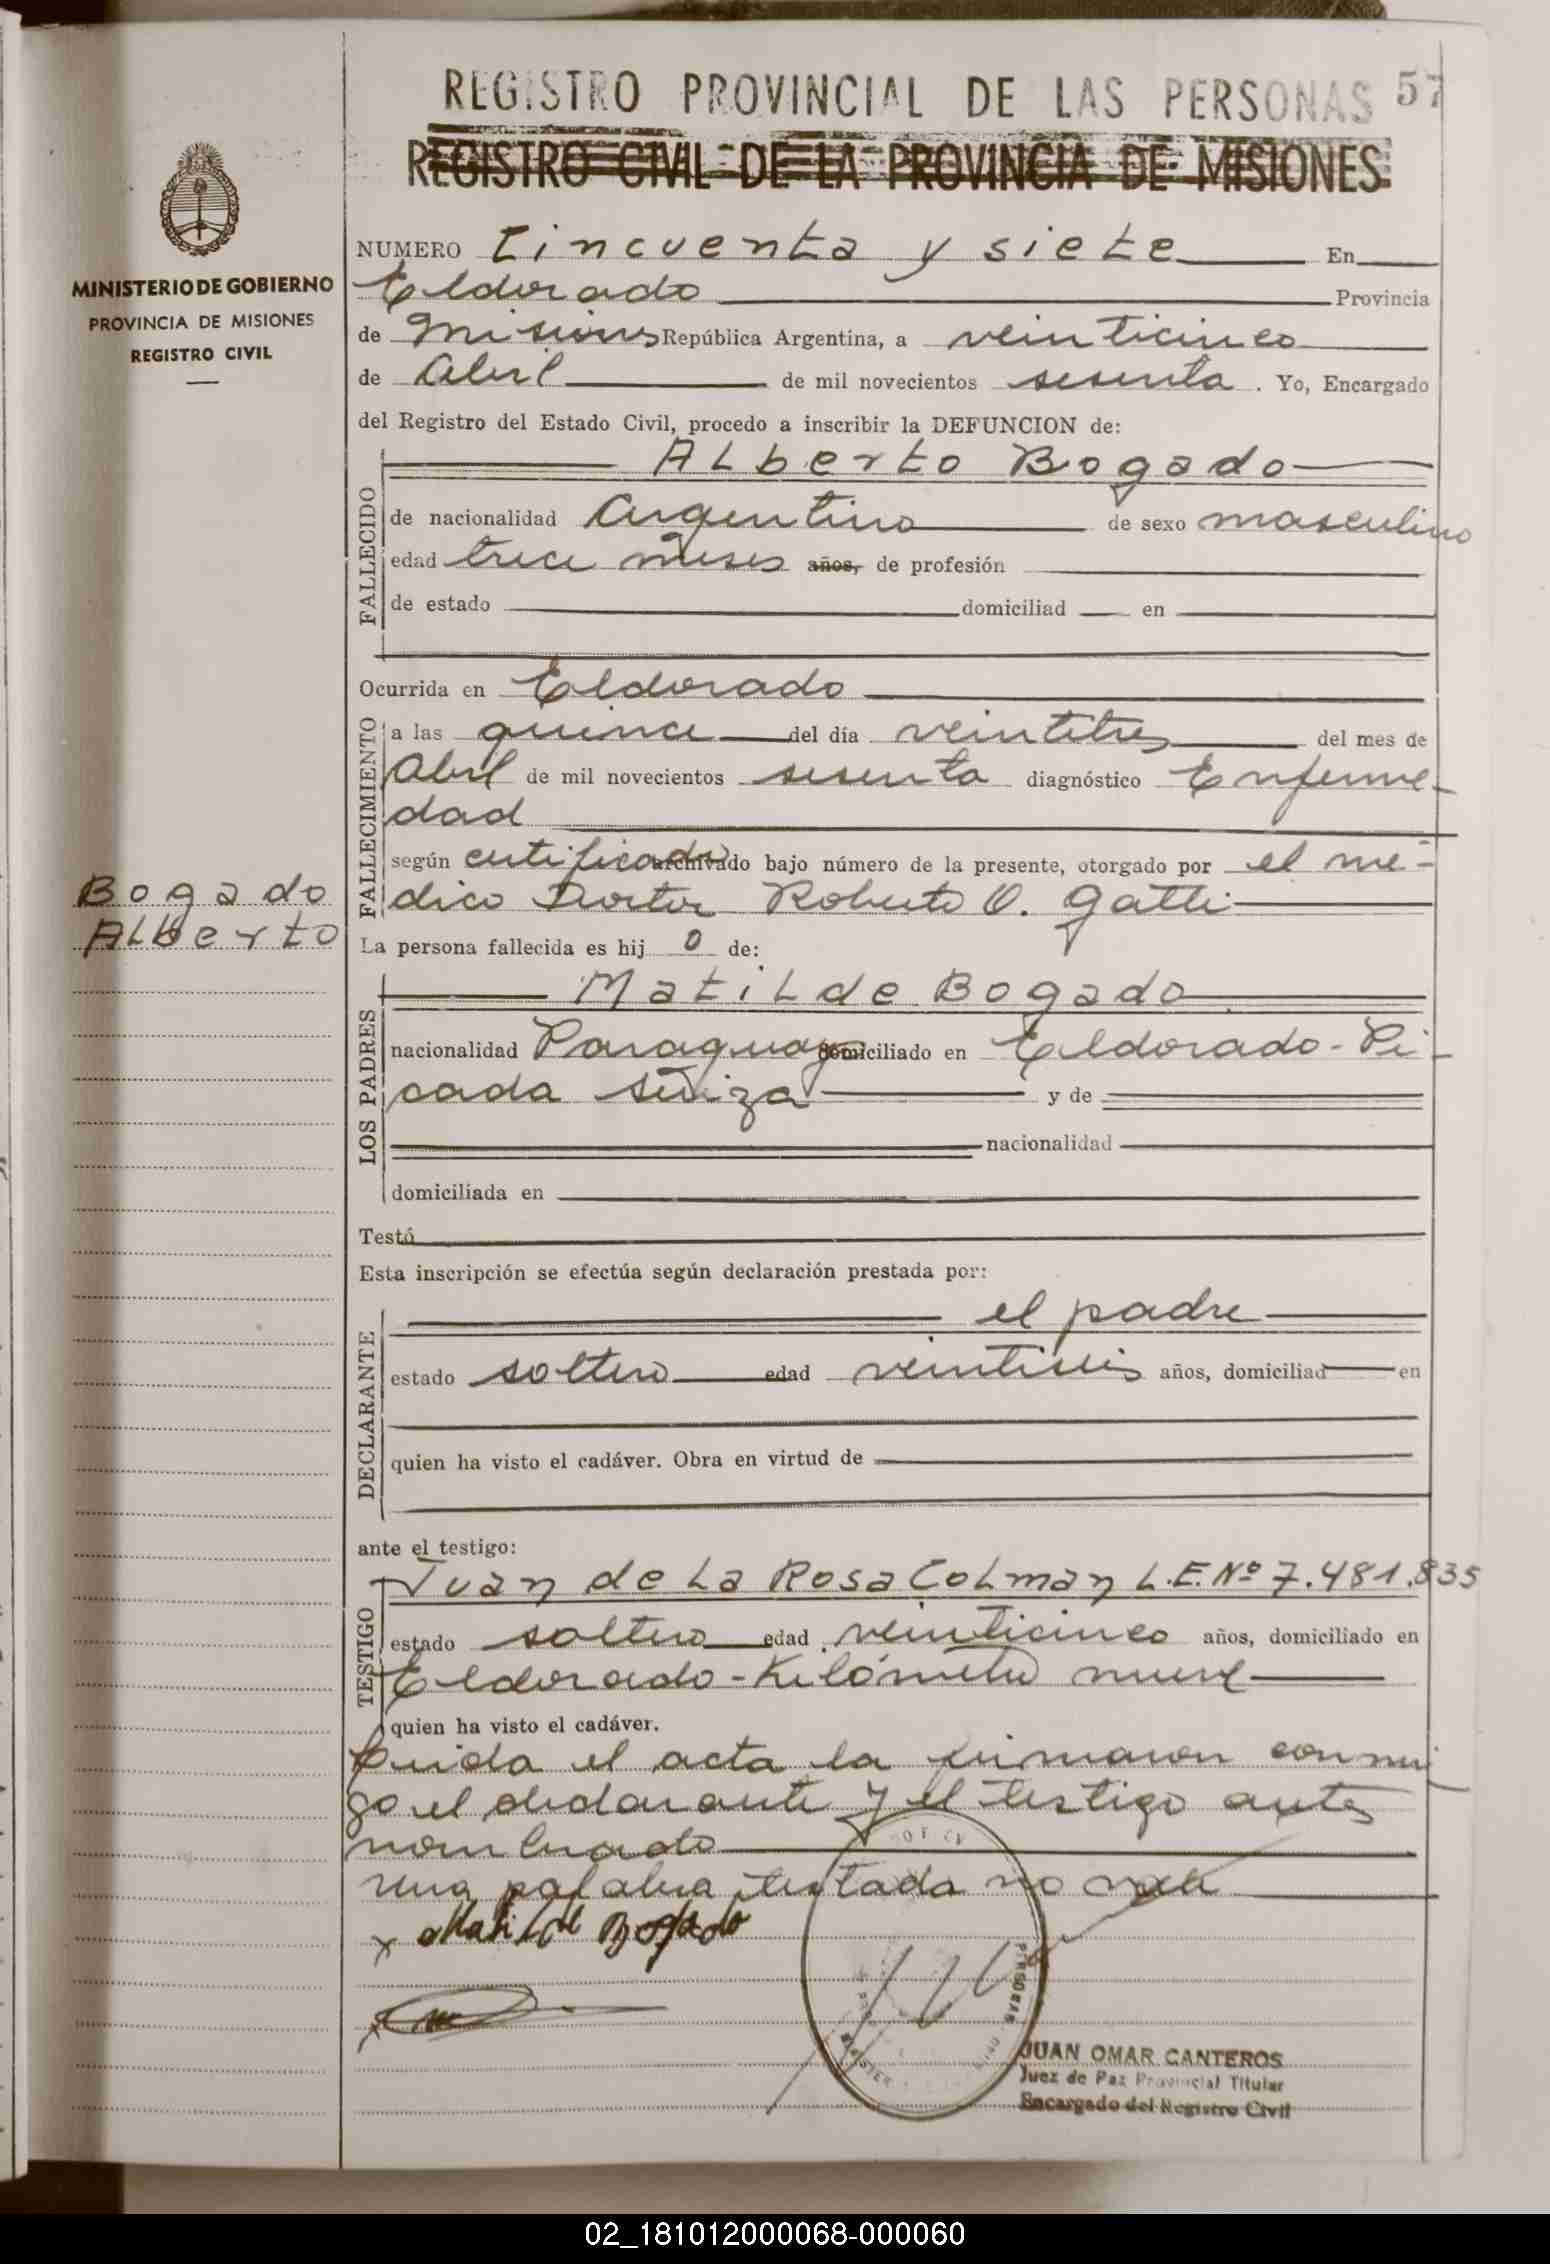 REGISTRO PROVINCIAL DE LAS PERSONAS 57
REGISTRO CIVIL DE LA PROVINCIA DE MISIONES
MINISTERIO DE GOBIERNO
PROVINCIA DE MISIONES
REGISTRO CIVIL
NUMERO Cincuenta y siete En
Eldorado Provincia
de Misiones República Argentina, a veinticinco
de Abril de mil novecientos sesenta . Yo, Encargado
del Registro del Estado Civil, procedo a inscribir la DEFUNCION de:
FALLECIDO
Alberto Bogado
de nacionalidad Argentino de sexo masculino
edad trece meses años, de profesión
de estado domiciliad en
Ocurrida en Eldorado
FALLECIMIENTO
a las quince del día veintitres del mes de
Abril de mil novecientos sesenta diagnóstico Enferme-
dad
según certificado archivado bajo número de la presente, otorgado por el mé-
dico Doctor Roberto O. Gatti
Bogado
Alberto
La persona fallecida es hij o de:
LOS PADRES
Matilde Bogado
nacionalidad Paraguay domiciliado en Eldorado-Pi-
cada Suiza y de
nacionalidad
domiciliada en
Testó
Esta inscripción se efectúa según declaración prestada por:
DECLARANTE
el padre
estado soltero edad veintiseis años, domiciliad en
quien ha visto el cadáver. Obra en virtud de
ante el testigo:
TESTIGO
Juan de La Rosa Colman L.E.Nº 7.481.835
estado soltero edad veinticinco años, domiciliado en
Eldorado-Kilómetro nueve
quien ha visto el cadáver.
Leida el acta la firmaron conmi-
go el declarante y el testigo antes
nombrado
una palabra testada no vale
x Matilde Bogado
x
PERSONAS
JUAN OMAR CANTEROS
Juez de Paz Provincial Titular
Encargado del Registro Civil
02_181012000068-000060